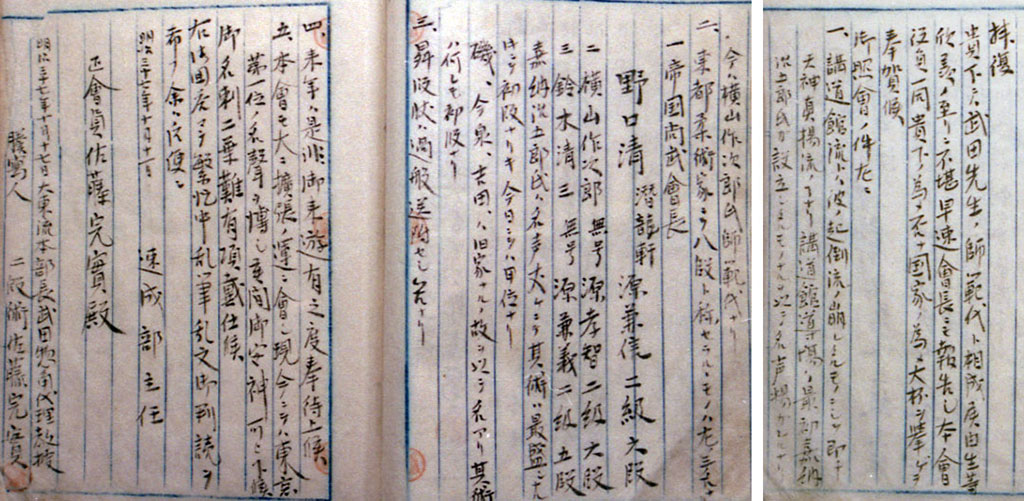 拝復
貴下ニハ武田先生ノ師範代ト相成度由生等
欣羨ノ至リニ不堪早速會長ニモ報告シ本會
役員一同貴下ノ為否ナ国家ノ為メ大杯ヲ挙ゲ
奉賀候
御照會ノ件左ニ
一、講道館流トハ彼ノ起倒流ノ崩シタルモノニシテ即チ
天神真揚流ナリ講道館道場ハ最初嘉納
治五郎氏ガ設立シタルモノナルヲ以テ名声揚ガ
今ハ横山作次郎氏師範代ナリ
二、東都柔術家ニテ八段ト称セラルヽモノハ左ノ三氏ナリ
野口清 潜龍軒 源兼信 二級六段
一帝国尚武會長
二横山作次郎 無号 源孝智二級六段
三鈴木清三 無号 源兼義二級五段
嘉納治五郎氏ハ名声大ナルモ其術ハ最
初段ナリキ今日ニテハ四位ナリ
磯、今泉、吉田、ハ旧家ナルノ故ヲ以テ名アリ其術
ハ何レモ初段ナリ
三、昇段状ハ過般送附セシ筈ナリ
四、来年ハ是非御来遊有之度奉待上候、
五、本會モ大ニ拡張ノ運ニ會シ現今ニテ東京
第一位ノ名聲ヲ博シ居間御安神可被下候
御名刺二葉難有頂戴仕候
右御回答マデ繁忙中乱筆乱文御判読ヲ
希フ余ハ后便ニ
明治三十七年十月十一日
速成部主任
正會員佐藤完實殿
明治三十七年十月十七日大東流本部長武田惣角代理教授
謄写人 二段術佐藤完實